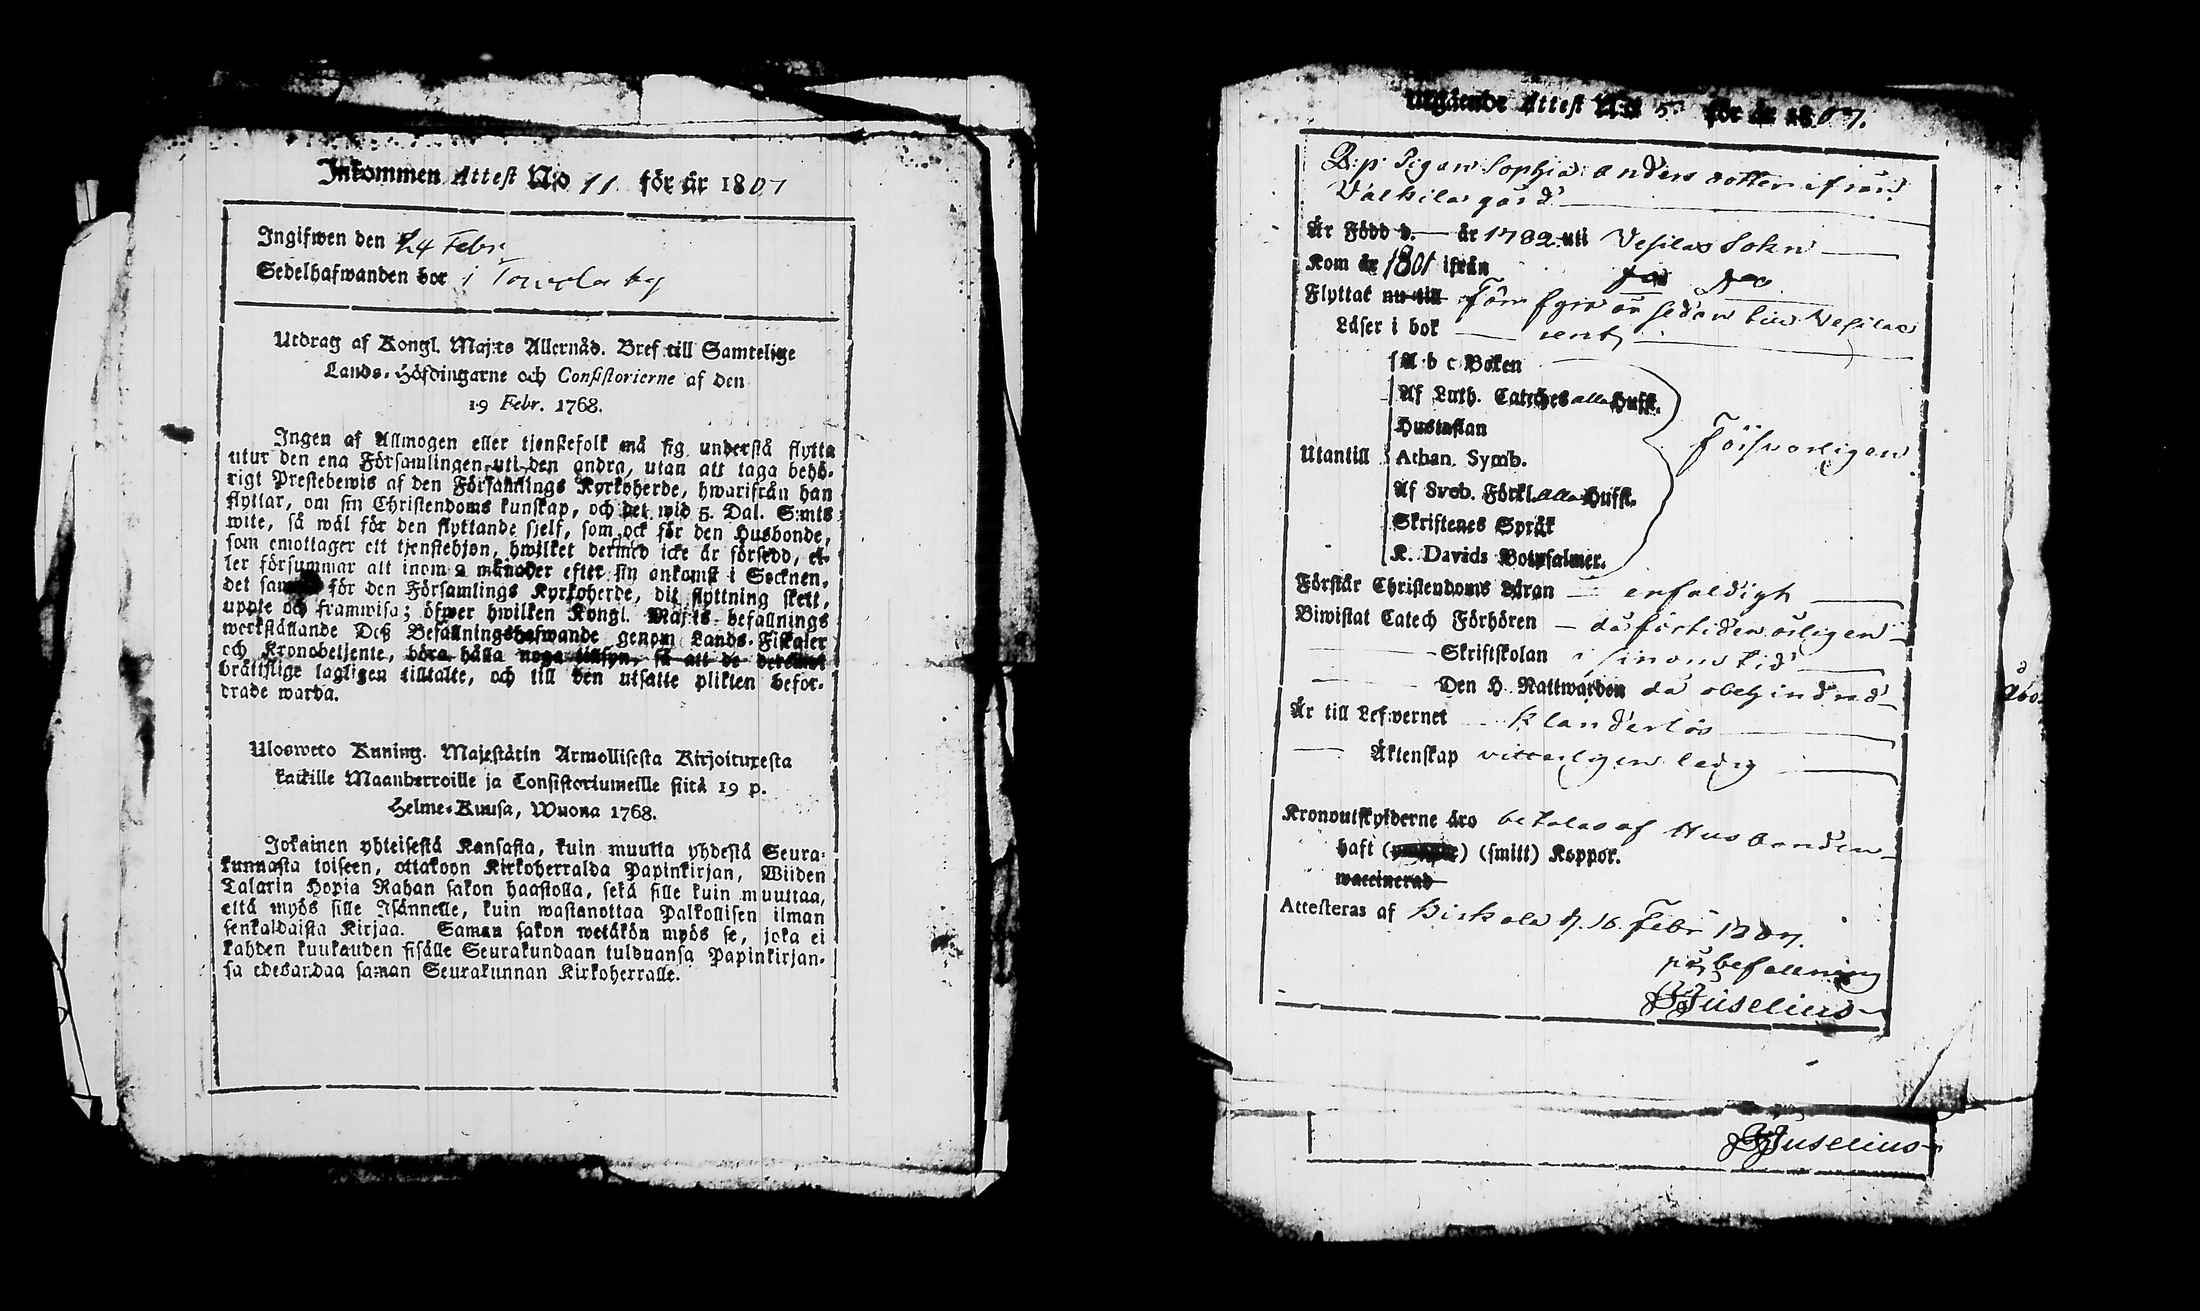 Inkommen Attest N:o 11 för år 1807
Ingifwen den 24 Febr.
Sedelhafwanden bor i Tourela by
Utdrag af Kongl. Maj:ts Allernåd. Bref till Samtelige
Lands-Höfdingarne och Consistorierne af den
19 Febr. 1768.
Ingen af Allmogen eller tjenstefolk må sig understå flytta
utur den ena Församlingen uti den andra, utan att taga behö-
rigt Prestebewis af den Församlings Kyrkoherde, hwarifrån han
flyttar, om sin Christendoms kunskap, och det wid 5. Dal. S:mts
wite, så wäl för den flyttande sjelf, som ock för den Husbonde,
som emottager ett tjenstehjon, hwilket dermed icke är försedd, el-
ler försummar att inom 2 månader efter sin ankomst i Socknen,
det samma för den Församlings Kyrkoherde, dit flyttning skett,
uppte och framwisa; öfwer hwilken Kongl. Maj:ts befallnings
werkställande Deß Befallningshafwande genom Lands-Fiskaler
och Kronobetjente, böra hålla noga tillsyn, så att de
brättslige lagligen tilltalte, och till den utsatte plikten befor-
drade warda.
Ulosweto Kuning. Majestätin Armollisesta Kirjoituxesta
kaikille Maanherroille ja Consistoriumeille siitä 19 p.
Helme-Kuusa, Wuona 1768.
Jokainen yhteisestä Kansasta, kuin muutta yhdestä Seura-
kunnasta toiseen, ottakoon Kirkoherralda Papinkirjan, Wiiden
Talarin Hopia Rahan sakon haastolla, sekä sille kuin muuttaa,
että myös sille Isännelle, kuin wastanottaa Palkollisen ilman
senkaldaista Kirjaa. Saman sakon wetäkön myös se, joka ei
kahden kuukauden sisälle Seurakundaan tulduansa Papinkirjan-
sa edesandaa saman Seurakunnan Kirkoherralle.
Utgående Attest N:o 5 för år 1807.
B:p: Pigan Sophia Andersdotter ifrån
Valkila gård
Är Född d. — år 1782 uti Vesilax Sokn
Kom år 1801 ifrån
Flyttat nu till för fyra år sedan till Vesilax
Läser i bok — rent
A b c Boken
Af Luth. Catches alla Hufst.
Hustaflan
Utantill Athan. Symb.
Af Sveb. Förkl. alla Hufst.
Skriftenes Språk
K. Davids Botpsalmer.
Försvarligen
Förstår Christendoms Läran — enfaldigt
Biwistat Catech Förhören —
Skriftskolan i sinom tid
Den H. Nattwarden då obehindrad
Är till Lefwernet klanderlös
Äktenskap vitterligen ledig
Kronoutskylderne äro betalas af Husbonden
haft () (smitt) Koppor.
waccinerad
Attesteras af Birkala d. 16. Febr 1807.
på befallning
Juselius
Juselius